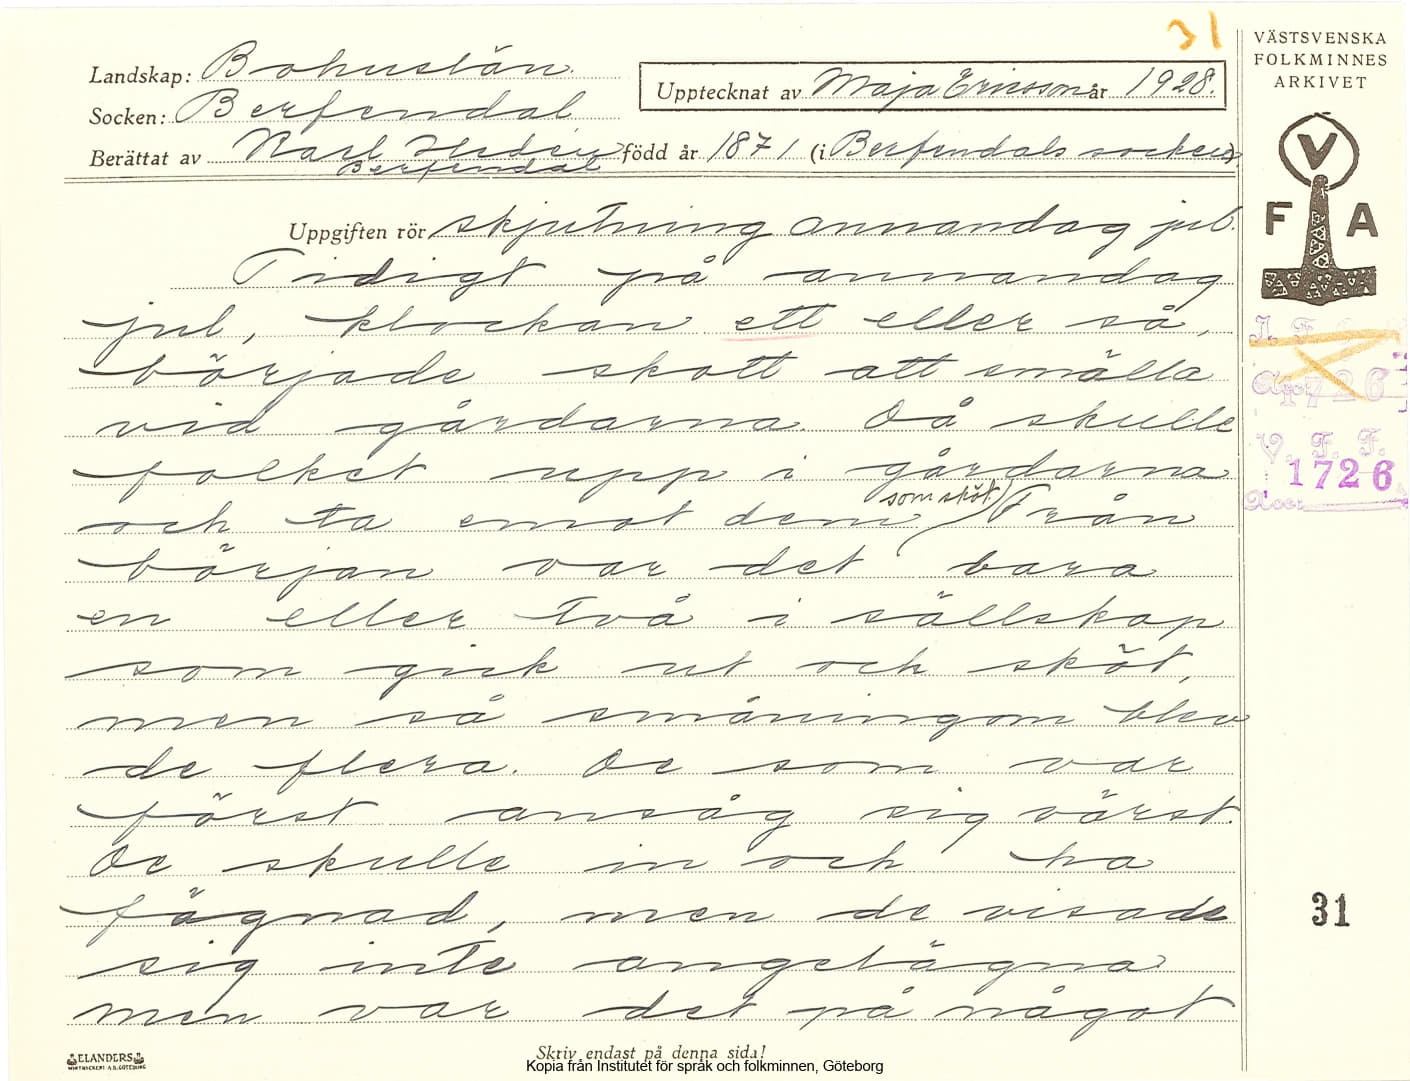 31
VÄSTSVENSKA
FOLKMINNES
ARKIVET
Landskap: Bohuslän.
Socken: Berfendal
Upptecknat av Maja Ericsson år 1928.
Berättat av Karl Hedén född år 1871 (i Berfendals socken)
Berfendal
V
F A
Uppgiften rör skjutning annandag jul.
Tidigt på annandag
jul, klockan ett eller så,
började skott att smälla
vid gårdarna. Då skulle
folket upp i gårdarna
som sköt.
och ta emot dem Från
början var det bara
en eller två i sällskap
som gick ut och sköt,
men så småningom blev
de flera. De som var
först ansåg sig värst.
De skulle in och ha
fägnad, men de visade
sig inte angelägna
men var det på något
I. F. G.
Acc. 1726
V. F. F.
1726
Acc:
31
ELANDERS
Skriv endast på denna sida!
Kopia från Institutet för språk och folkminnen, Göteborg